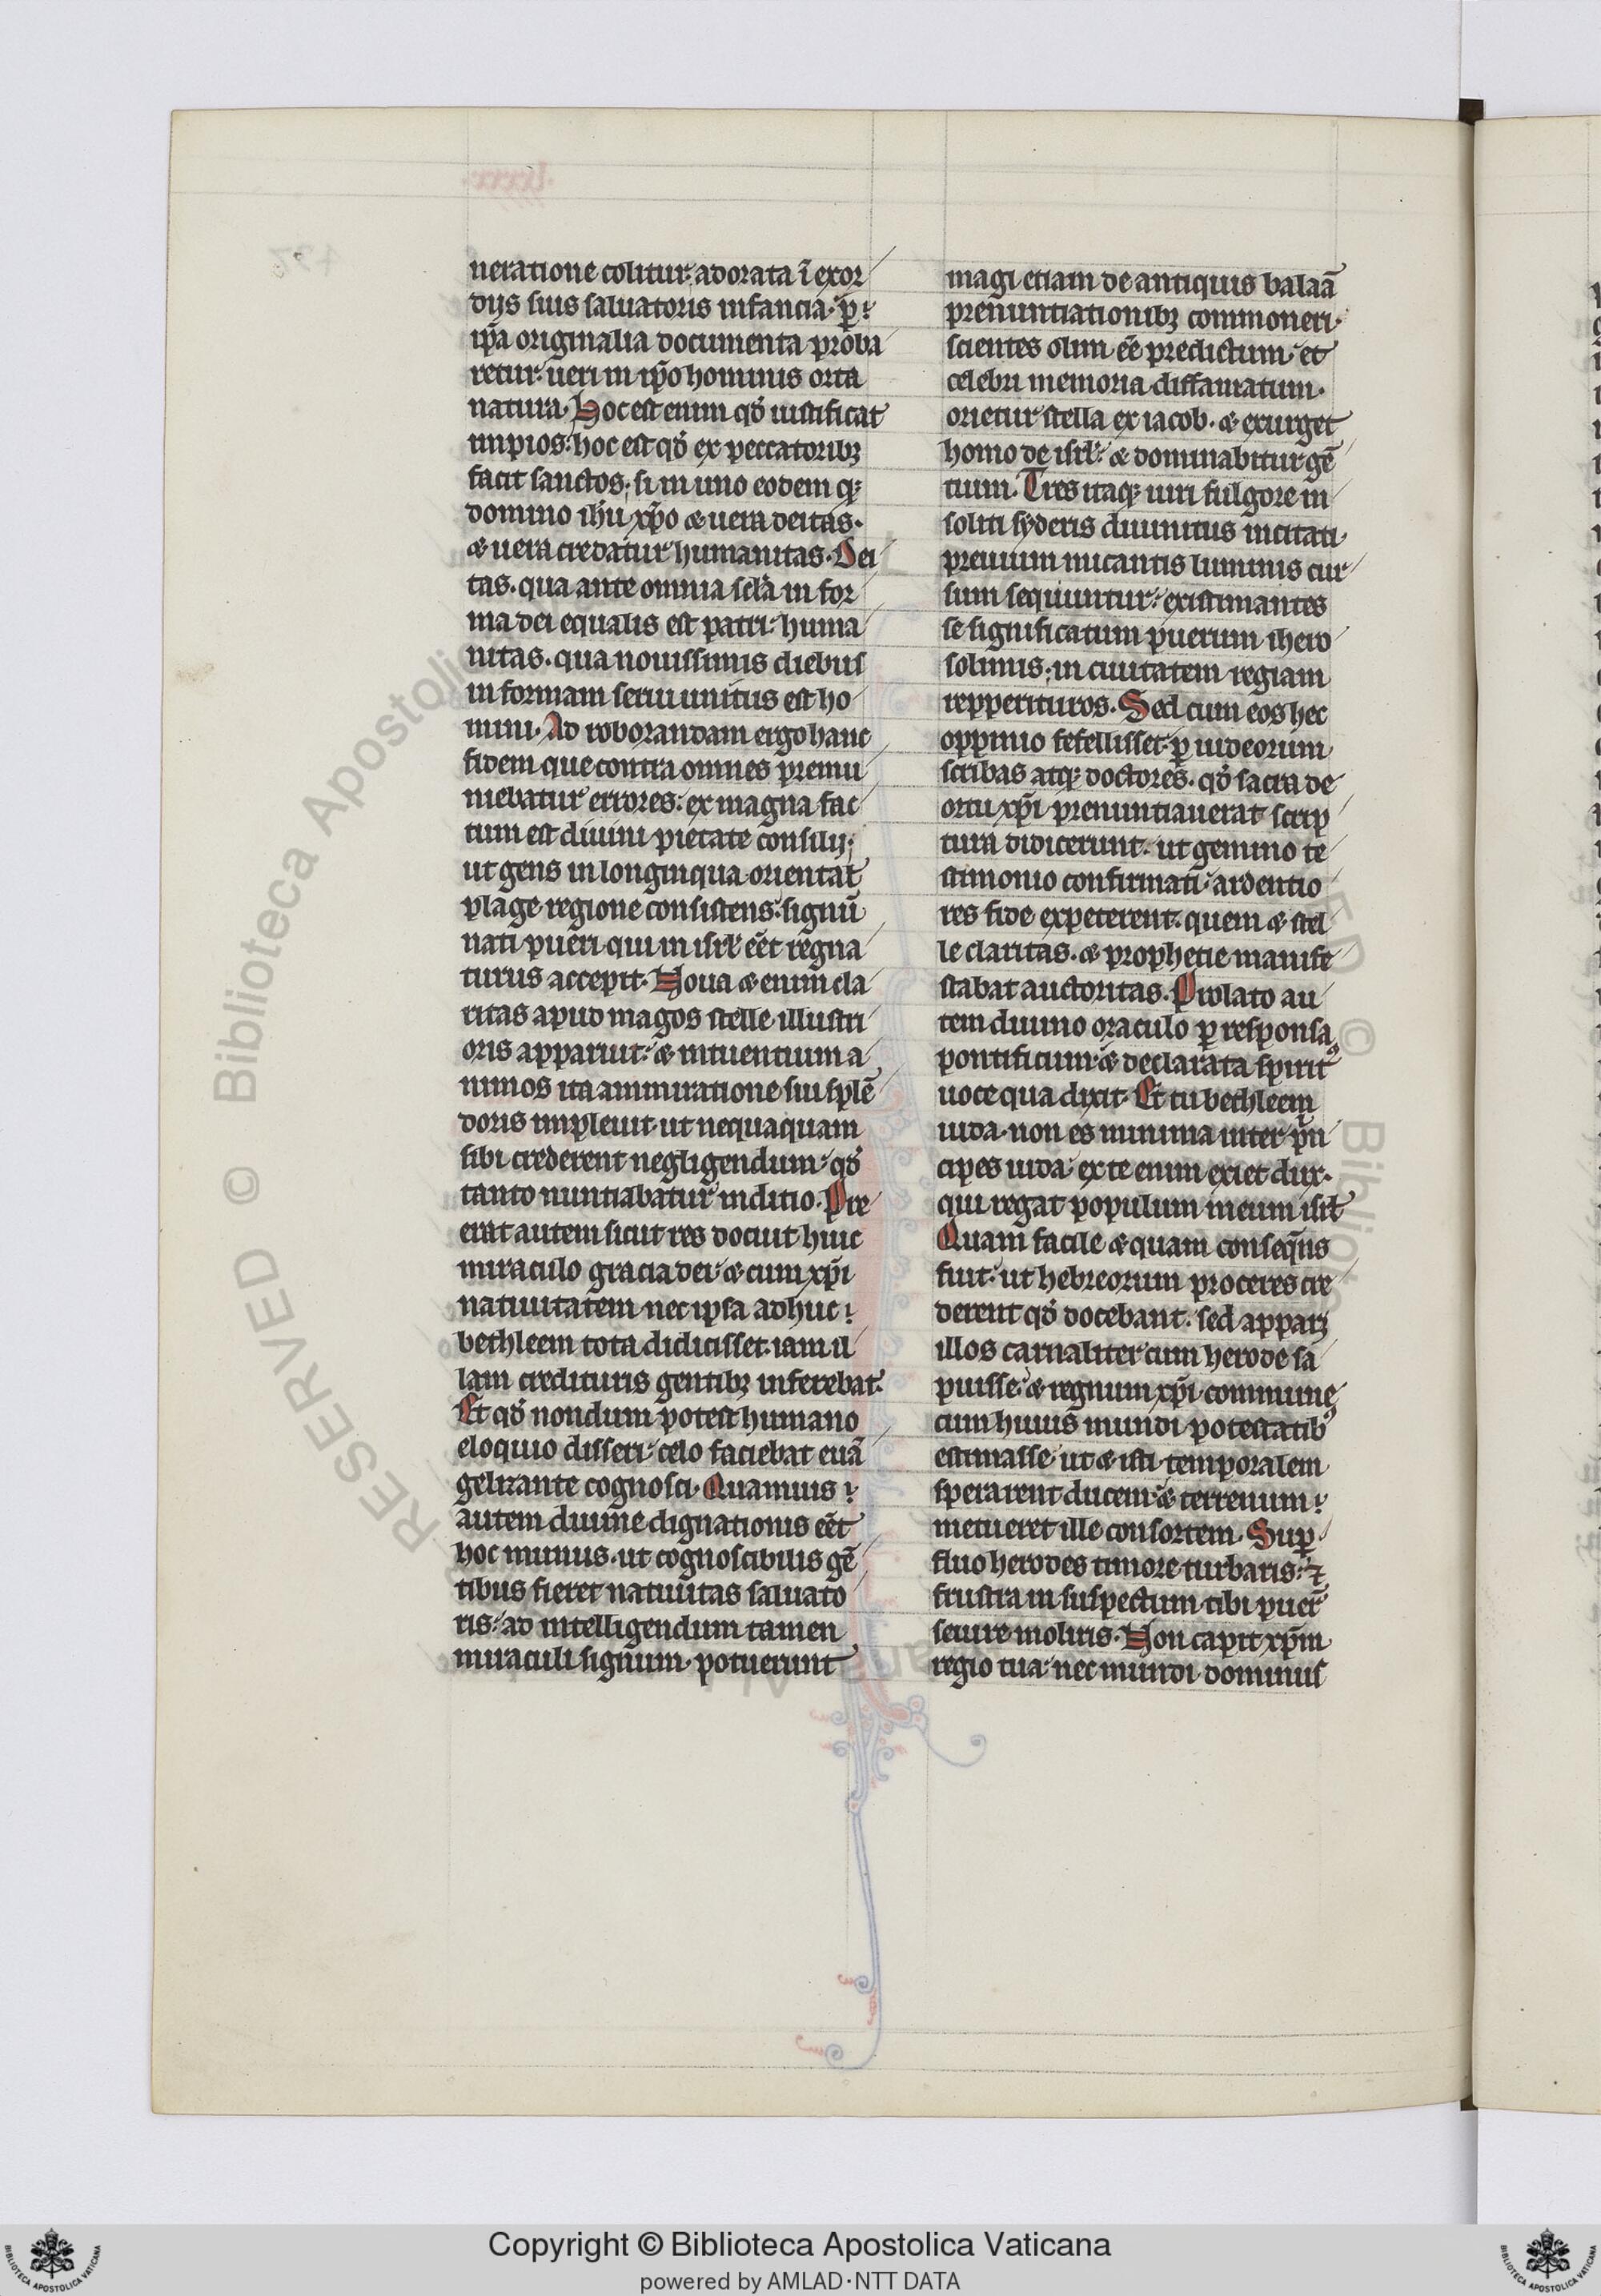 neratione colitur adorata ī exor
dijs suis saluatoris infancia· ꝑ
ip̄a originalia documenta proba
retur· ueri in ip̄o hominis orta
natura· Hoc est enim qđ iustificat
impios· hoc est qđ ex peccatoribꝫ
facit sanctos; si in uno eodem qꝫ
domino ih̄u xp̄o & uera deitas·
& uera credatur humanitas· Dei
tas· qua ante omnia scl̄a in for
ma dei equalis est patri· huma
nitas· qua nouissimis diebus
in formam serui unitus est ho
mini· Ad roborandam ergo hanc
fidem que contra omnes premu
niebatur errores· ex magna fac
tum est diuini pietate consilij;
ut gens in longinqua oriental̄
plage regione consistens· signū
nati pueri qui in isrl̄ eēt regna
turus accepit· Noua & enim cla
ritas apud magos stelle illustri
oris apparuit· & intuentium a
nimos ita ammiratione sui splē
doris impleuit· ut nequaquam
sibi crederent negligendum· qđ
tanto nuntiabatur inditio· Pre
erat autem sicut res docuit huic
miraculo gracia dei· & cum xp̄i
natiuitatem nec ipsa adhuc
bethleem tota didicisset· iam il
lam credituris gentibꝫ inferebat·
Et qđ nondum potest humano
eloquio disseri· celo faciebat euā
gelizante cognosci· Quamuis
autem diuine dignationis eēt
hoc munus· ut cognoscibilis gē
tibus fieret natiuitas saluato
ris· ad intelligendum tamen
miraculi signum· potuerunt
magi etiam de antiquis balaā
prenuntiationibꝫ commoneri·
scientes olim eē predictum· et
celebri memoria diffamatum·
orietur stella ex iacob· & exurget
homo de isrl̄· & dominabitur gē
tium· Tres itaqꝫ uiri fulgore in
soliti syderis diuinitus incitati·
preuium micantis luminis cur
sum sequuntur· existimantes
se significatum puerum ihero
solimis· in ciuitatem regiam
repperituros· Sed cum eos hec
oppinio fefellisset· ꝑ iudeorum
scribas atqꝫ doctores· qđ sacra de
ortu xp̄i prenuntiauerat scrip
tura didicerunt· ut gemino te
stimonio confirmati· ardentio
res fide expeterent· quem & stel
le claritas· & prophetie manife
stabat auctoritas· Prolato au
tem diuino oraculo ꝑ responsa
pontificum· & declarata spiritꝰ
uoce qua dixit· Et tu bethleem
iuda· non es minima inter p̄n
cipes iuda· ex te enim exiet dux·
qui regat populum meum isrl̄
Quam facile & quam conseq̄ns
fuit· ut hebreorum proceres cre
derent qđ docebant· sed apparꝫ
illos carnaliter cum herode sa
puisse· & regnum xp̄i commune
cum huius mundi potestatibꝰ
estimasse· ut & isti temporalem
sperarent ducem· & terrenum
metueret ille consortem· Suꝑ
fluo herodes timore turbaris· ⁊
frustra in suspectum tibi puer̄
seuire moliris· Non capit xp̄m
regio tua· nec mundi dominus
Copyright © Biblioteca Apostolica Vaticana
powered by AMLAD·NTT DATA
RESERVED © Biblioteca Apostolica